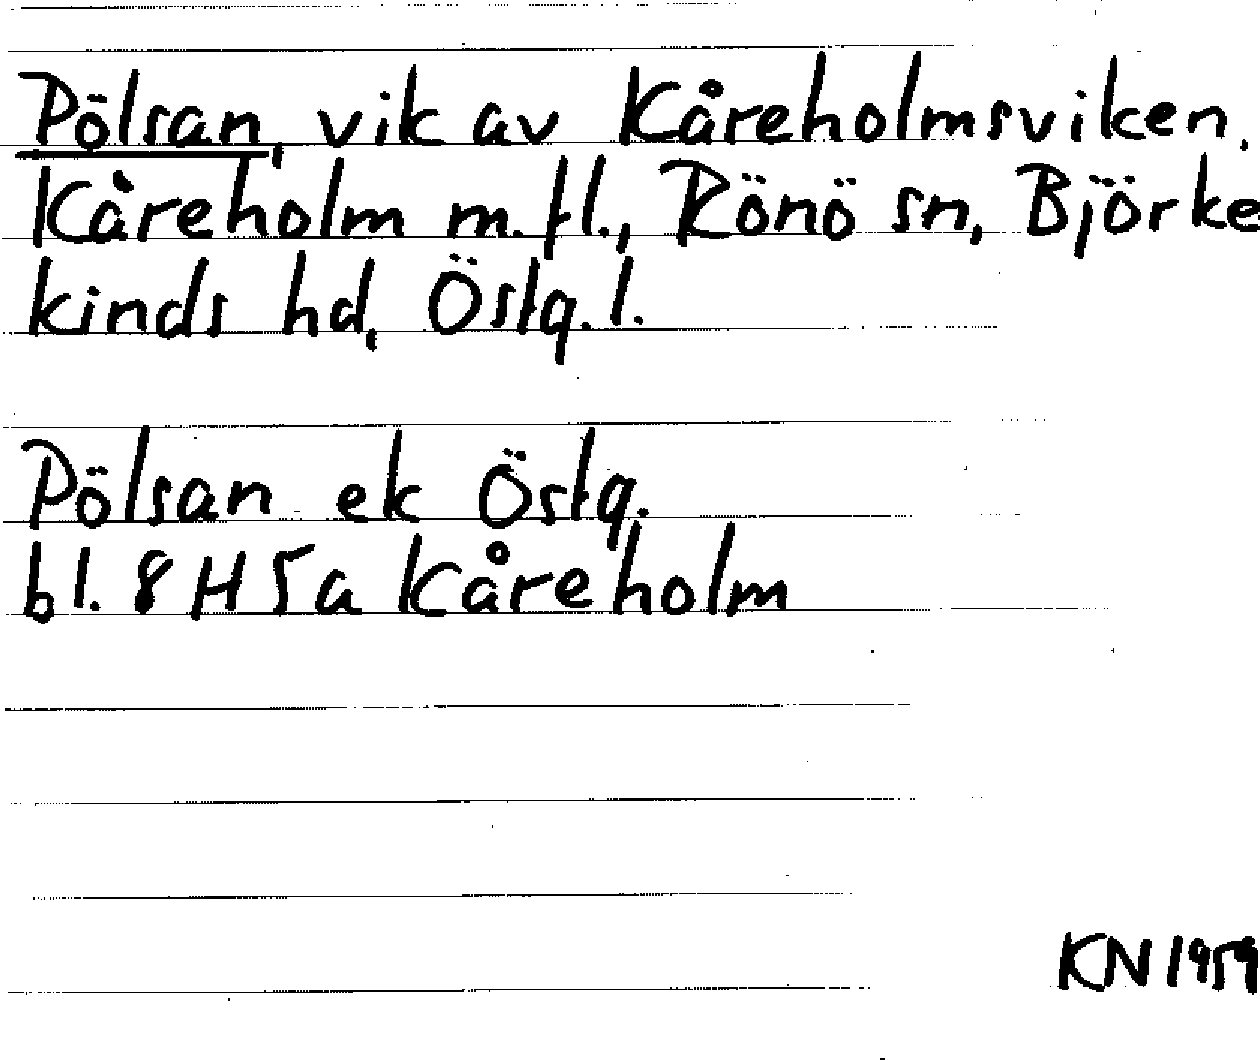 Pölsan, vik av Kåreholmsviken,
Kåreholm m.fl., Rönö sn, Björke
kinds hd, Östg.l.
Pölsan ek Östg.
bl. 8H5a Kåreholm
KN 1959